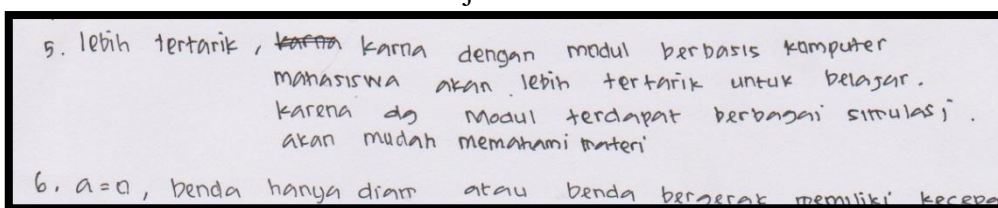 5. lebih tertarik, karna karna dengan modul berbasis komputer
mahasiswa akan lebih tertarik untuk belajar.
karena dg modul terdapat berbagai simulasi.
akan mudah memahami materi
6. a=0, benda hanya diam atau benda bergerak memiliki